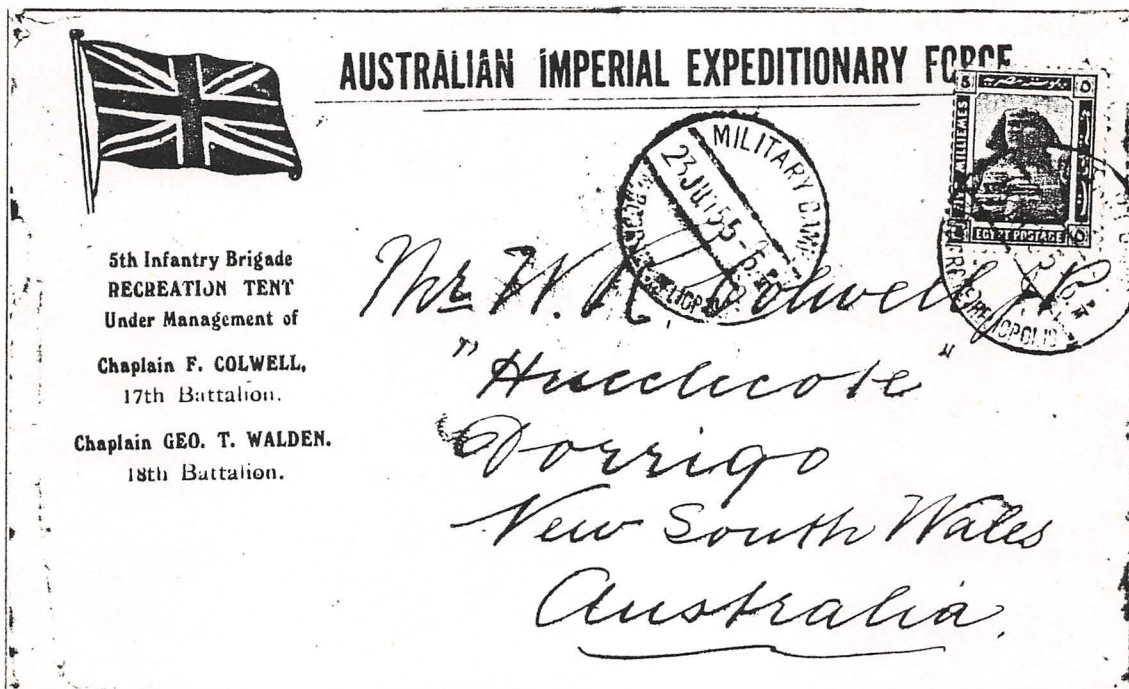 AUSTRALIAN IMPERIAL EXPEDITIONARY FORCE
5th Infantry Brigade
RECREATION TENT
Under Management of
Chaplain F. COLWELL,
17th Battalion.
Chaplain GEO. T. WALDEN.
18th Battalion.
MILITARY CAMP
23 JU 15 5-6
HELIOPOLIS
5
MILLIEMES
EGYPT POSTAGE
HELIOPOLIS
Mr W. R. Colwell J.P.
"Hucclecote"
Dorrigo
New South Wales
Australia.